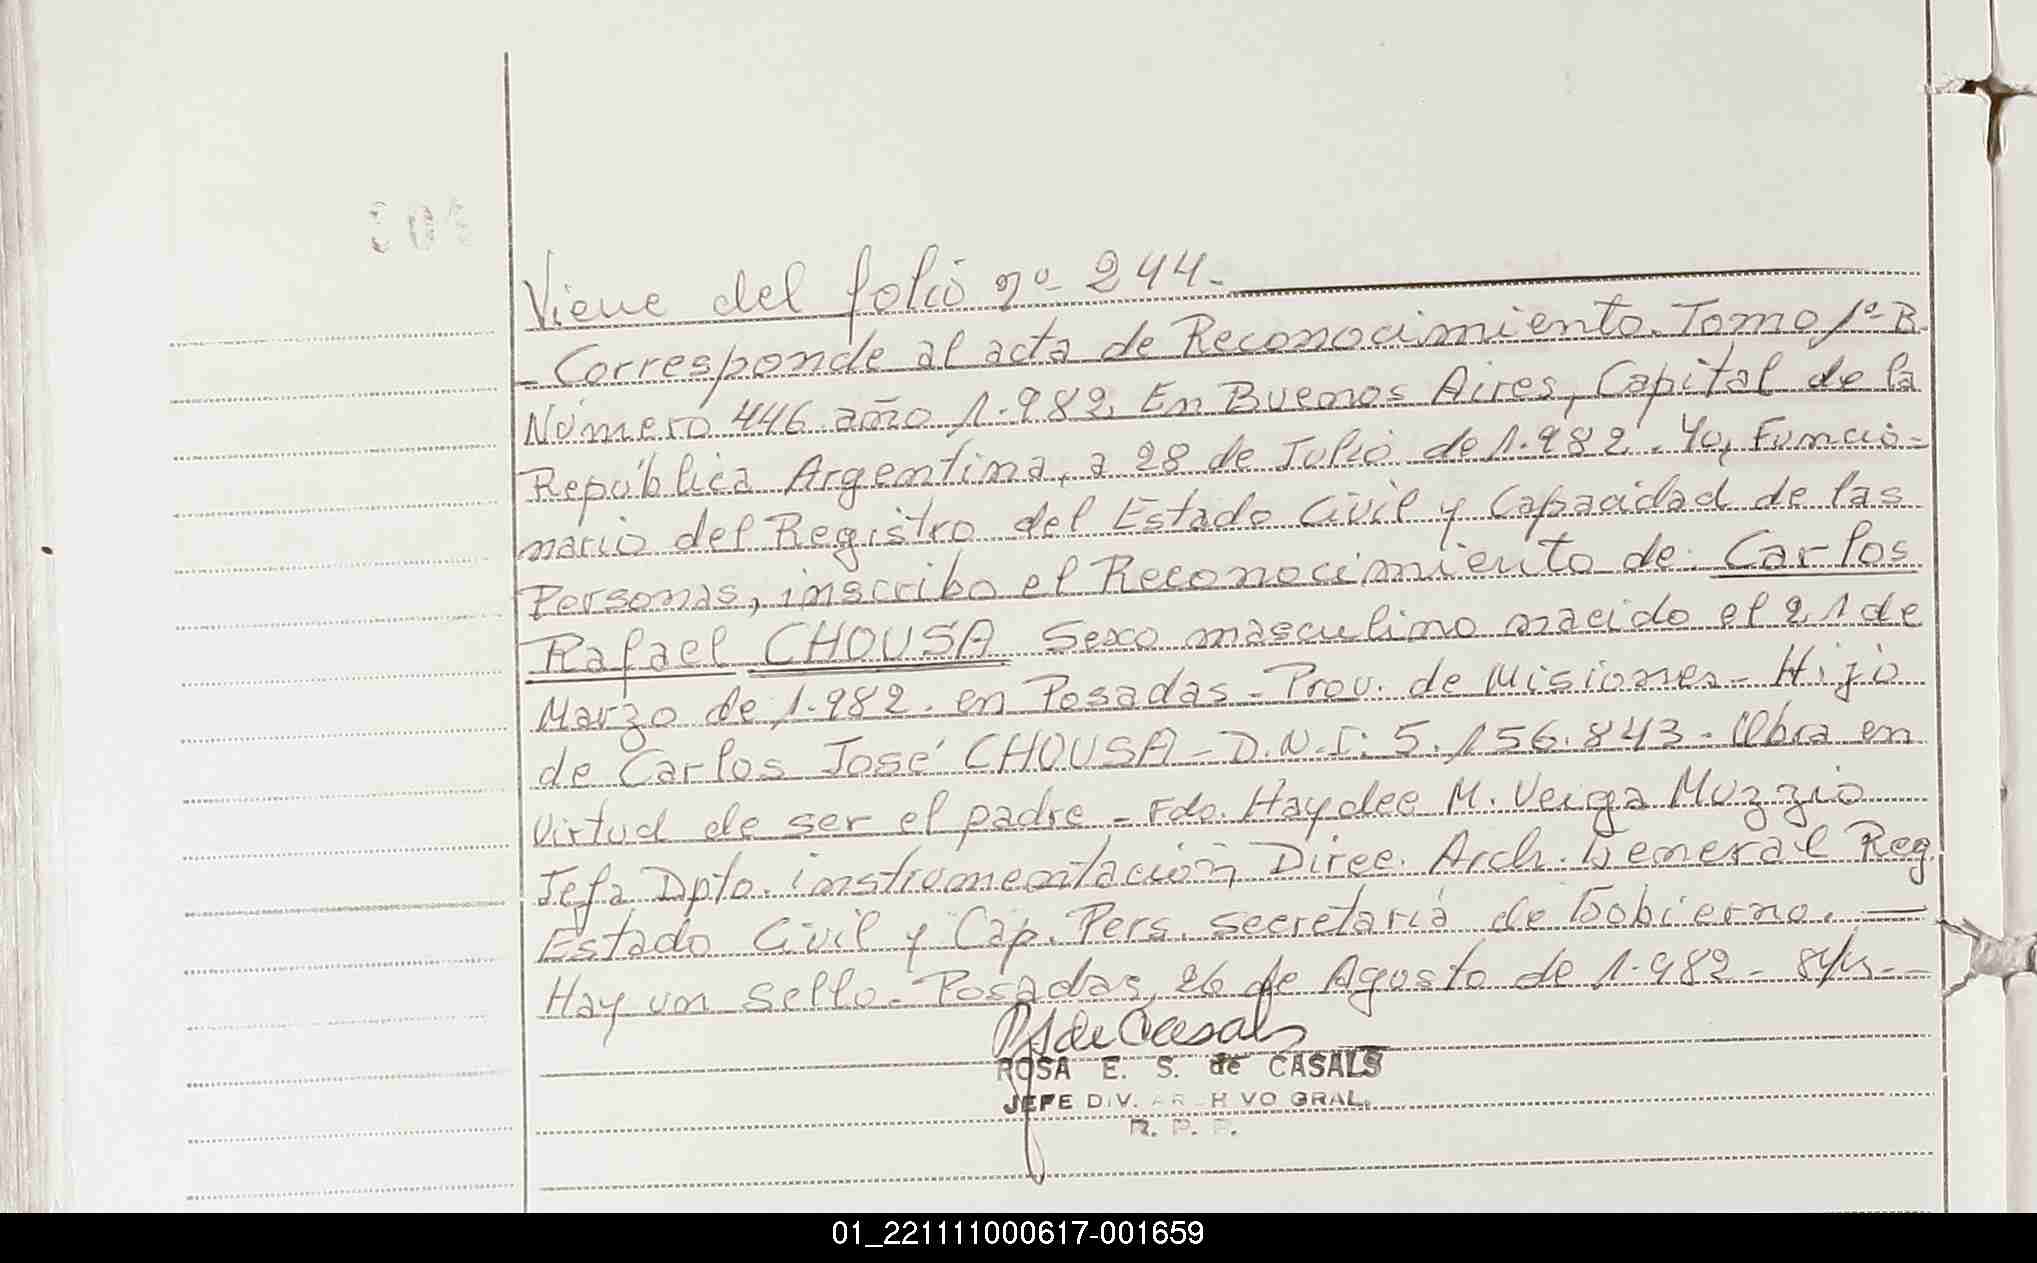 Viene del folio nº 244.-
- Corresponde al acta de Reconocimiento. Tomo 1º-B.
Número 446 año 1.982. En Buenos Aires, Capital de la
República Argentina, a 28 de Julio de 1.982. Yo, Funcio-
nario del Registro del Estado Civil y Capacidad de las
Personas, inscribo el Reconocimiento de: Carlos
Rafael CHOUSA Sexo masculino nacido el 21 de
Marzo de 1.982. en Posadas - Prov. de Misiones - Hijo
de Carlos José CHOUSA - D.N.I: 5.156.843 - Obra en
virtud de ser el padre - Fdo. Haydee M. Veiga Muzzio
Jefa Dpto. instrumentación Direc. Arch. General Reg.
Estado Civil y Cap. Pers. secretaría de Gobierno. —
Hay un sello. Posadas, 26 de Agosto de 1.982 -
ROSA E. S. de CASALS
JEFE DIV. ARCHIVO GRAL.
R. P. P.
01_221111000617-001659